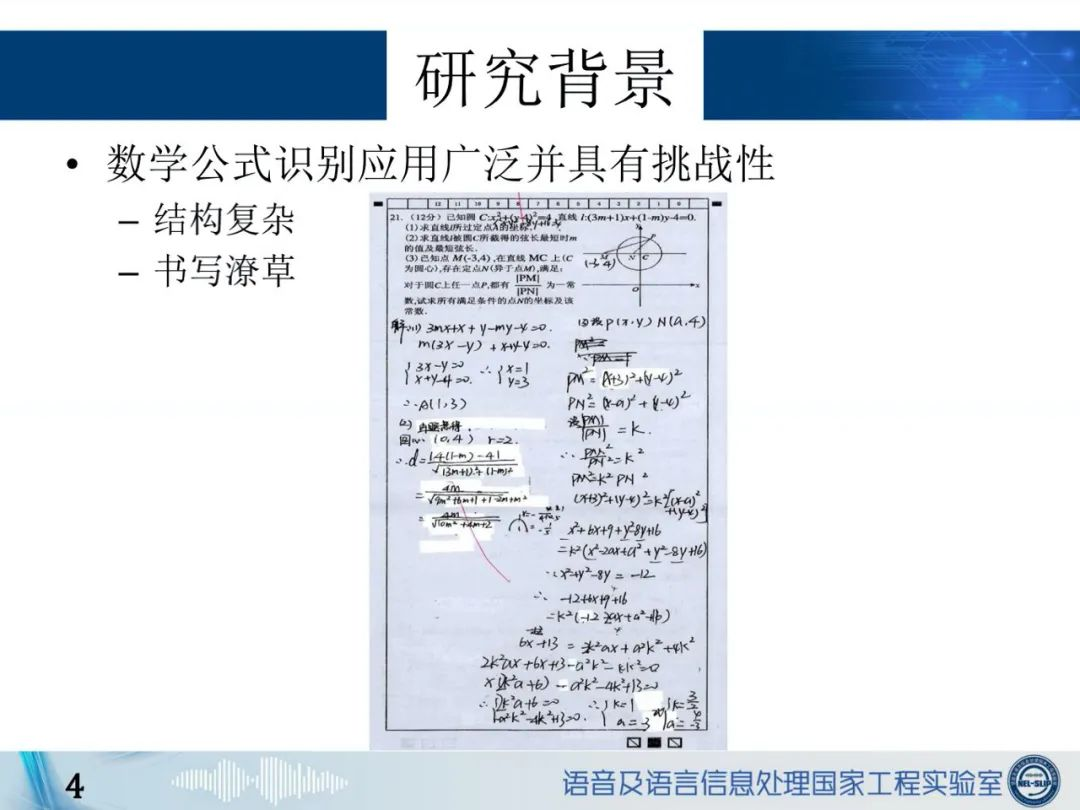 研究背景
• 数学公式识别应用广泛并具有挑战性
– 结构复杂
– 书写潦草
12 11 10 9 8 7 6 5 4 3 2 1 0
21.（12分）已知圆 C:x²+(y-4)²=4,直线 l:(3m+1)x+(1-m)y-4=0.
(1)求直线l所过定点A的坐标.
(2)求直线l被圆C所截得的弦长最短时m
的值及最短弦长.
(3)已知点 M(-3,4),在直线 MC 上(C
为圆心),存在定点N(异于点M),满足:
对于圆C上任一点P,都有 |PM|/|PN| 为一常
数,试求所有满足条件的点N的坐标及该
常数.
(-3,4)
N C
O
x
解:(1) 3mx+x+y-my-4=0.
m(3x-y)+x+y-4=0.
{3x-y=0
x+y-4=0.
∴ {x=1
y=3
∴A(1,3)
(2)
圆心(0,4) r=2.
∴d=|4(1-m)-4|/√(3m+1)²+(1-m)²
=4m/√9m²+6m+1+1-2m+m²
=4m/√10m²+4m+2
(3)设P(x,y) N(a,4)
PM²=(x+3)²+(y-4)²
PN²=(x-a)²+(y-4)²
设|PM|/|PN|=k.
∴PM²/PN²=k²
PM²=k²PN²
(x+3)²+(y-4)²=k²[(x-a)²+(y-4)²]
x²+6x+9+y²-8y+16
=k²(x²-2ax+a²+y²-8y+16)
∵x²+y²-8y=-12
∴-12+6x+9+16
=k²(-12-2ax+a²+16)
6x+13=-2k²ax+a²k²+4k²
2k²ax+6x+13-a²k²-4k²=0
x(2k²a+6)-a²k²-4k²+13=0
∴{2k²a+6=0
-a²k²-4k²+13=0.
∴{k=1
a=-3
4
语音及语言信息处理国家工程实验室
NEL-SLIP